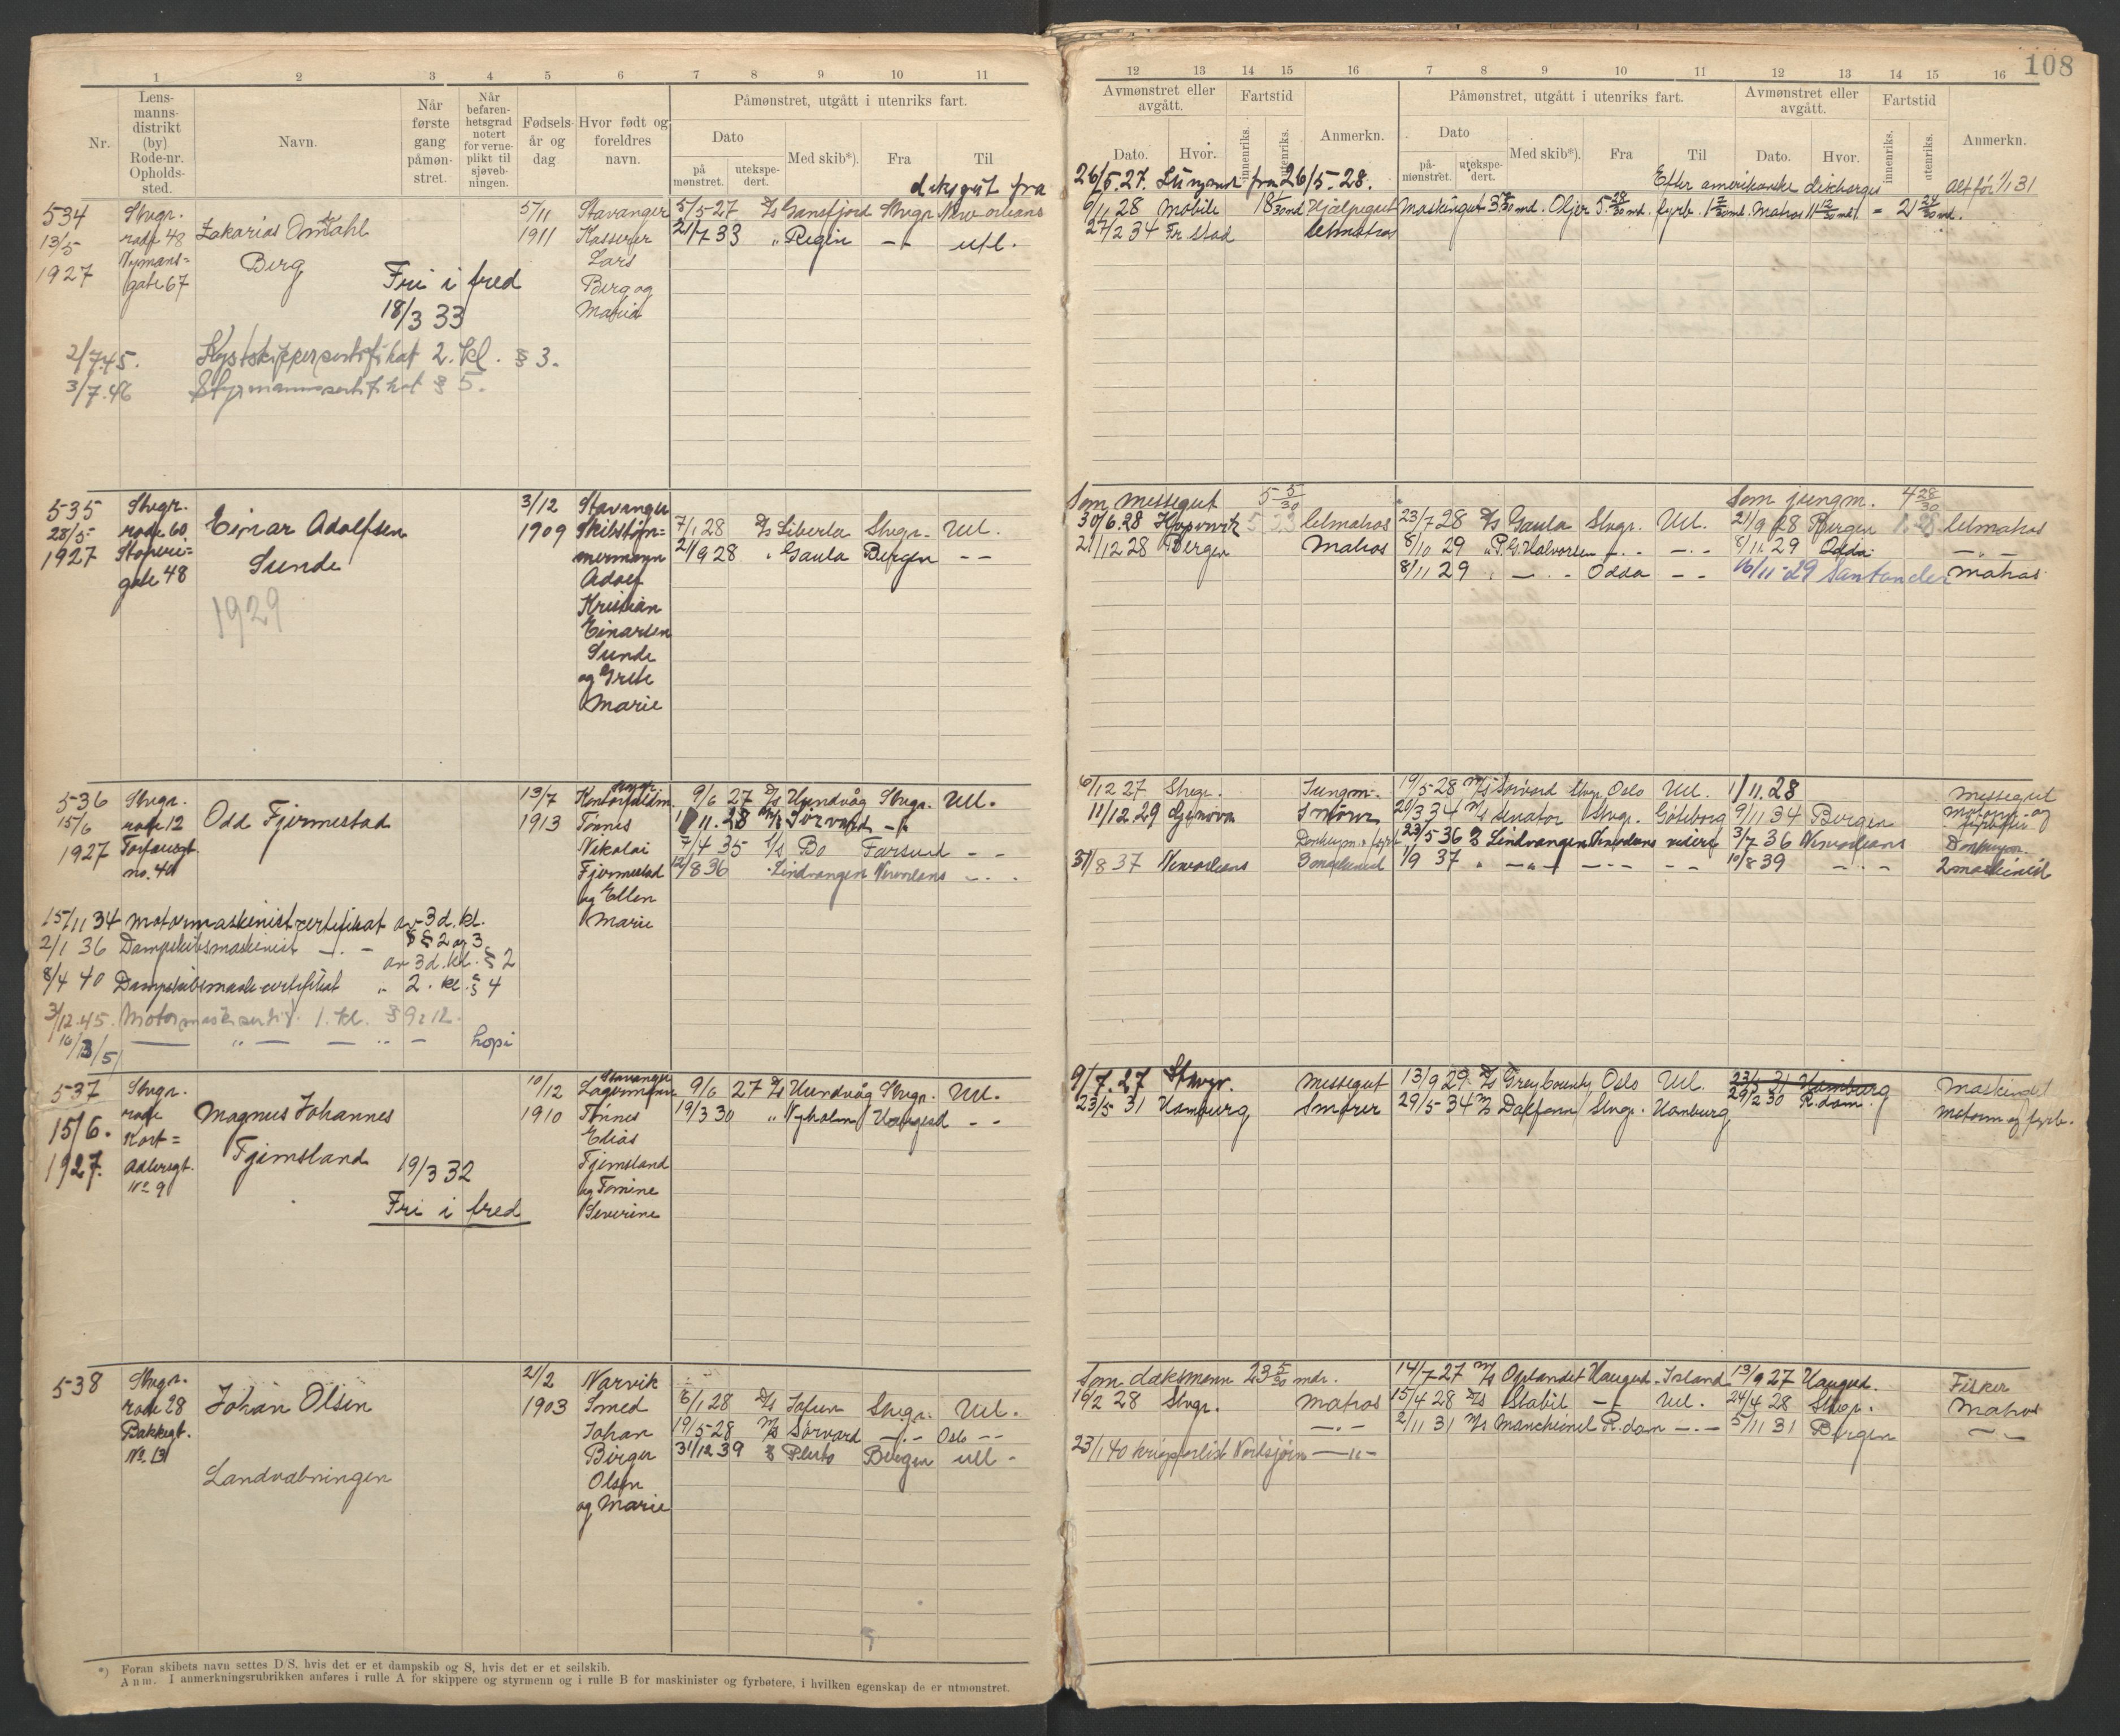 108
1 2 3 4 5 6 7 8 9 10 11
12 13 14 15 16 7 8 9 10 11 12 13 14 15 16
Nr.
Lens-
manns-
distrikt
(by)
Rode-nr.
Opholds-
sted.
Navn.
Når
første
gang
påmøn-
stret.
Når
befaren-
hetsgrad
notert
for verne-
plikt til
sjøveb-
ningen.
Fødsels-
år og
dag
Hvor født og
foreldres
navn.
Påmønstret, utgått i utenriks fart.
Dato
på
mønstret.
utekspe-
dert.
Med skib*).
Fra
Til
Avmønstret eller
avgått.
Dato.
Hvor.
Fartstid
innenriks.
utenriks.
Anmerkn.
Påmønstret, utgått i utenriks fart.
Dato
på-
mønstret.
utekspe-
dert.
Med skib*).
Fra
Til
Avmønstret eller
avgått.
Dato.
Hvor.
Fartstid
innenriks.
utenriks.
Anmerkn.
deksgut fra
26/5.27. fra 26/5-28.
Efter amerikanske discharges
alt før 1/1 31
534
13/5
1927
Stvgr.
rode 48
gate 67
Zakarias Omdahl
Berg
Fri i fred
18/3 33
5/11
1911
Stavanger
Kasserer
Lars
Berg og
Maria
5/5-27 D/S Gansfjord Stvgr. New orleans
21/7 33 " Regin -"- utl.
6/11 28 Mobile 18 /30 md Hjælpegut Maskingut md. Oljer 5 28/30 md. fyrb. Matros = 21 md.
27/2 34 Fr.stad letmatros
2/7.45. Kystskippersertifikat 2. kl. § 3.
3/7.46 Styrmannssertifikat § 5.
535
28/5-
1927
Stvgr.
rode 60.
gate 48
Einar Adolfsen
Sunde
1929
3/12
1909
Stavanger
Skibstøm=
mermann
Adolf
Kristian
Einarsen
Sunde
og Grete
Marie
7/1 28 D/S Liberta Stvgr. Utl.
21/9 28 " Gaula Bergen - -
Som messegut 5 5/30
30/6.28 letmatros 23/7 28 D/S Gaula Stvgr. Utl. 21/9 28 Bergen letmatros
Som jungm. 4 28/30
21/12 28 Bergen Matros 8/10 29 " P.G. Halvorsen -"- -"- 8/11 29 Odda -"-
8/11 29 " -"- Odda - - 16/11-29 Santander matros
536
15/6
1927
Stvgr.
rode 12
no. 40
Odd Fjermestad
13/7
1913
Stvgr.
Kontorfuldm.
Tønnes
Nikolai
Fjermestad
og Ellen
Marie
9/6 27 D/S Hundvåg Stvgr. Utl.
1/11.28 M/S Sørvard -"-
7/4 35 D/S Bo Farsund - -
12/8 36 " Lindvangen Neworleans -"-
6/12 27 Stvgr. Jungm. 19/5-28 M/S Sørvard Stvgr. Oslo Utl. 1/11.28 Messegut
11/12 29 Genova Smører 20/3 34 M/S Senator Stvgr. Göteborg 9/11 34 Bergen Motorm. og
Donkeym. 23/5 36 Lindvangen Neworleans videre 3/7 36 Neworleans
31/8 37 Neworleans 3 maskinist 1/9 37 " -"- - - - - - 10/8 39 - - - 2 maskinist
15/11 34 Motormaskinistcertifikat av 3d. kl.
§§ 2 og 3
2/1 36 Dampskibsmaskinist -"- av 3d. kl. § 2
8/4 40 Dampskibsmask certifikat " 2. kl. § 4
3/12.45. Motormaskinsertif. 1. kl. § 9, 12.
" - kopi
537
15/6.
1927.
Stvgr.
rode
Kort=
Adlersgt.
No 9
Magnus Johannes
Fjemsland
19/3 32
Fri i fred
10/12
1910
Stavanger
Lagermann
Tønnes
Elias
Fjemsland
og Tomine
Severine
9/6 27 D/S Hundvåg Stvgr. Utl.
19/3 30 " Nyholm Haugesd - -
9/7.27 Stavgr. Messegut 13/9 29. D/S Grey County Oslo Utl. 23/5 31 Hamburg Maskindt
29/2 30 R.dam.
23/5 31 Hamburg Smører 29/5-34 Stvgr. Hamburg Motorm og fyrb.
538
Stvgr.
rode 28
Bakkegt.
No. 13
Johan Olsen
Landvæbningen
21/2
1903
Narvik
Smed
Johan
Birger
Olsen
og Marie
6/1 28 D/S Stvgr. Utl.
19/5-28 M/S Sørvard -"- Oslo --
31/12 39 Pluto Bergen utl -
Som daksmann 23 5/30 mdr. 14/7-27 M/S Oplandet Haugsd. Island 13/9 27 Haugsd. Fisker
16/2 28 Stvgr. Matros 15/4 28 D/S Stabil -"- Utl. 24/4 28 Stvgr. Matros
-"- 2/11 31 M/S Manchinel R.dam -"- 5/11 31 Bergen -"-
23/1 40 krigsforlist Nordsjøen -"-
*) Foran skibets navn settes D/S. hvis det er et dampskib og S, hvis det er et seilskib.
Anm. I anmerkningsrubrikken anføres i rulle A for skippere og styrmenn og i rulle B for maskinister og fyrbøtere, i hvilken egenskap de er utmønstret.